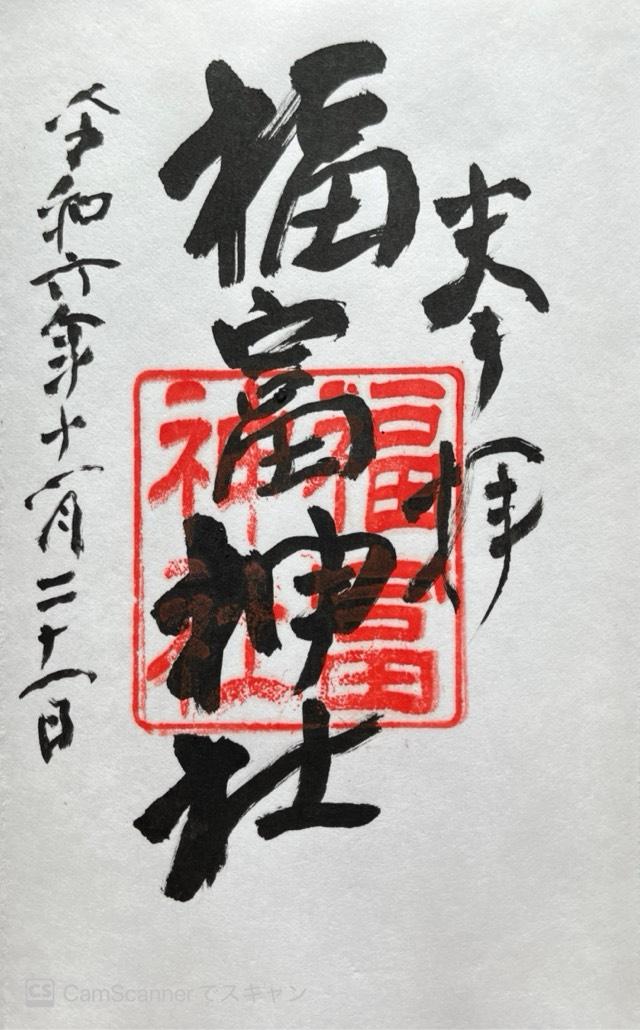 奉拝
福富神社
福富
神社
令和六年十一月二十一日
CS CamScannerでスキャン